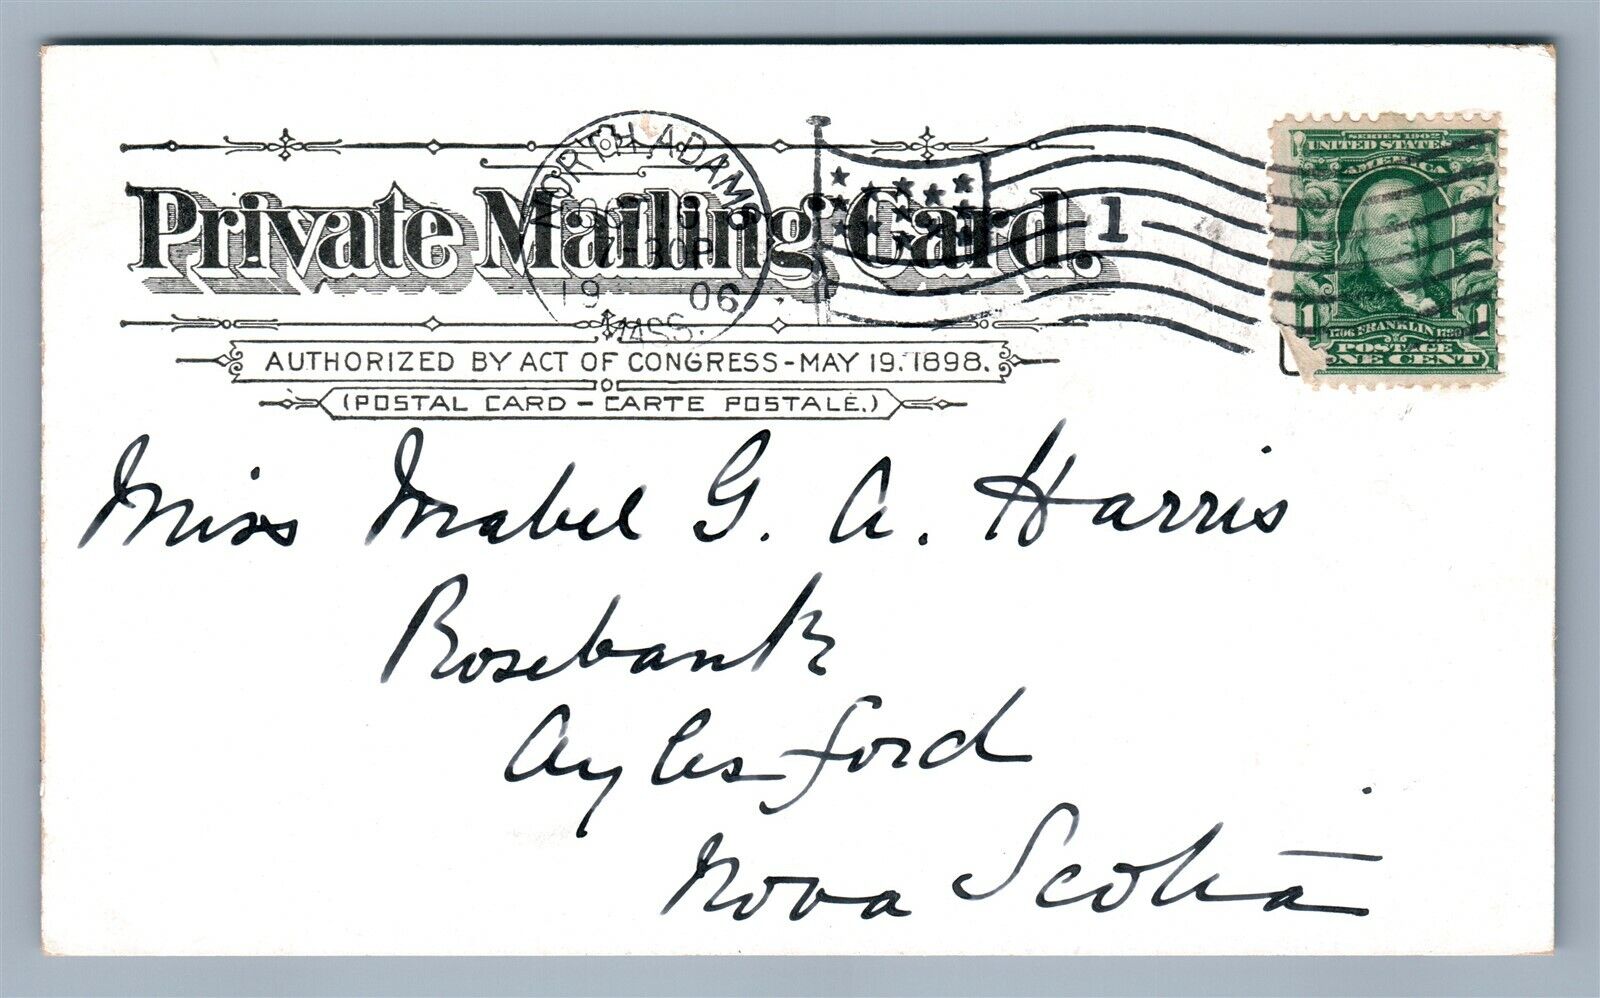 Private Mailing Card.
NORTH ADAMS
7-30P
19 06
MASS.
1
SERIES 1902
UNITED STATES
OF AMERICA
1706 FRANKLIN 1790
1 1
POSTAGE
ONE CENT
AUTHORIZED BY ACT OF CONGRESS-MAY 19. 1898.
(POSTAL CARD - CARTE POSTALE.)
Miss Mabel G. A. Harris
Rosebank
Aylesford
Nova Scotia